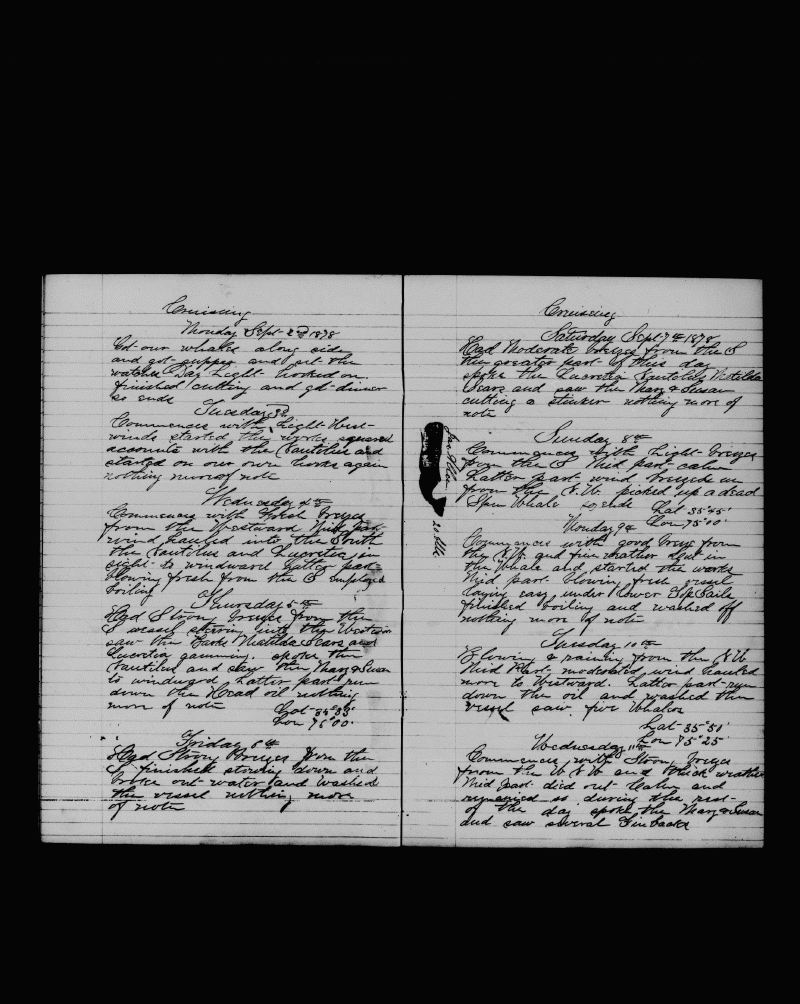 Cruising
Monday Sept 2nd 1878
Got our whales along side
and got supper and set the
watches Day Light hooked on
finished cutting and got dinner
so ends
Tuesday 3d
Commences with Light West
winds started the works squared
accounts with the Nautilus and
started on our own hooks again
nothing more of note
Wednesday 4th
Commences with Fresh Breezes
from the Westward Mid Part
wind hauled into the South
the Nautilus and Lucretia in
sight to windward Latter part
blowing fresh from the S employed
boiling
Thursday 5th
Had Strong Breezes from the
S vessel steering into the Western
saw the Bark Matilda Sears and
Lucretia gamming. spoke the
Nautilus and saw the Mary & Susan
to windward Latter part run
down the Head oil nothing
more of note Lat 35°
Lon 76°00'
Friday 6th
Had Strong Breezes from the
S finished stowing down and
broke out water and washed
the vessel nothing more
of note
Cruising
Saturday Sept 7th 1878
Had Moderate breezes from the S
the greater part of this day
spoke the Lucretia Nautilus Matilda
Sears and saw the Mary & Susan
cutting a stinker nothing more of
note
Sunday 8th
Commences with Light Breezes
from the S Mid part calm
Latter part wind breezed in
from the N.W. picked up a dead
Sperm Whale so ends Lat 35°45'
Monday 9th Lon 75°00'
Commences with good breeze from
the N.W. and fine weather cut in
the Whale and started the works
Mid part blowing fresh vessel
laying easy under Lower Top Sails
finished boiling and washed off
nothing more of note
20 bbls
Tuesday 10th
Blowing & raining from the N.W.
Mid Part moderated wind hauled
more to Westward. Latter part run
down the oil and washed the
vessel saw five Whalers
Lat 35°51'
Lon 75°25'
Wednesday 11th
Commences with Strong breezes
from the W.N.W and thick weather
Mid part died out Calm and
remained so during the rest
of the day spoke the Mary & Susan
and saw several Finbacks